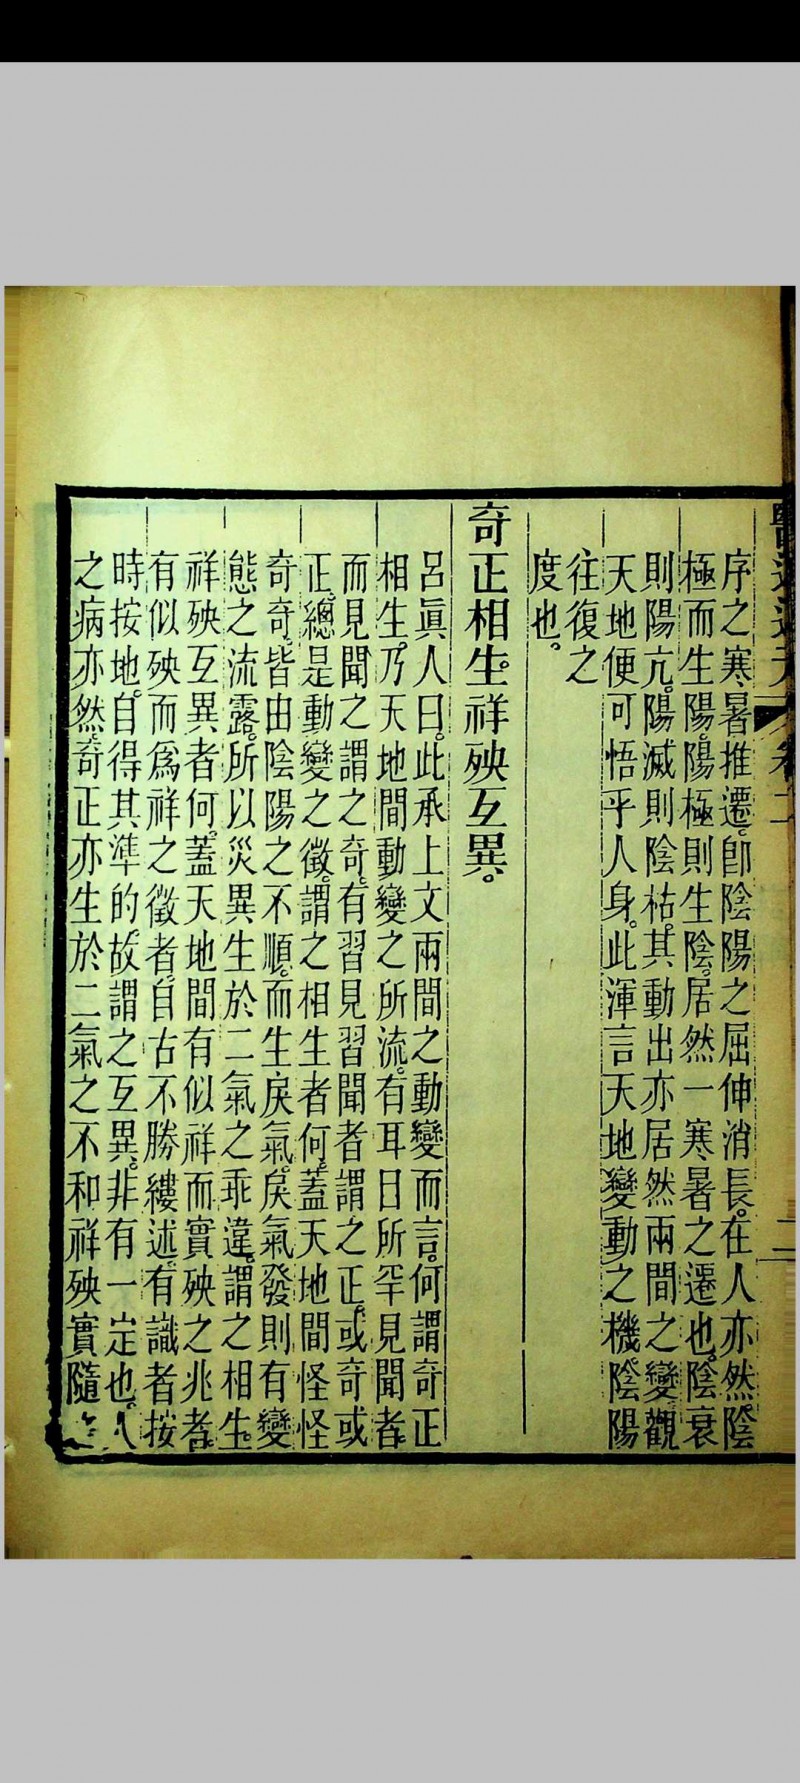 序之寒暑推遷。卽陰陽之屈伸消長。在人亦然。陰
極而生陽。陽極則生陰。居然一寒暑之遷也。陰衰
則陽亢。陽滅則陰枯。其動出亦居然兩間之變。觀
天地便可悟乎人身。此渾言天地變動之機。陰陽
往復之
度也。
奇正相生。祥殃互異。
呂眞人曰。此承上文兩間之動變而言。何謂奇正
相生。乃天地間動變之所流。有耳目所罕見聞者。
而見聞之謂之奇。有習見習聞者謂之正。或奇或
正。總是動變之徵。謂之相生者何。蓋天地間怪怪
奇奇。皆由陰陽之不順。而生戾氣。戾氣發則有變
態之流露。所以災異生於二氣之乖違。謂之相生。
祥殃互異者何。蓋天地間有似祥而實殃之兆者。
有似殃而爲祥之徵者。自古不勝縷述。有識者按
時按地。自得其準的。故謂之互異。非有一定也。人
之病亦然。奇正亦生於二氣之不和祥殃實隨
卷二
二